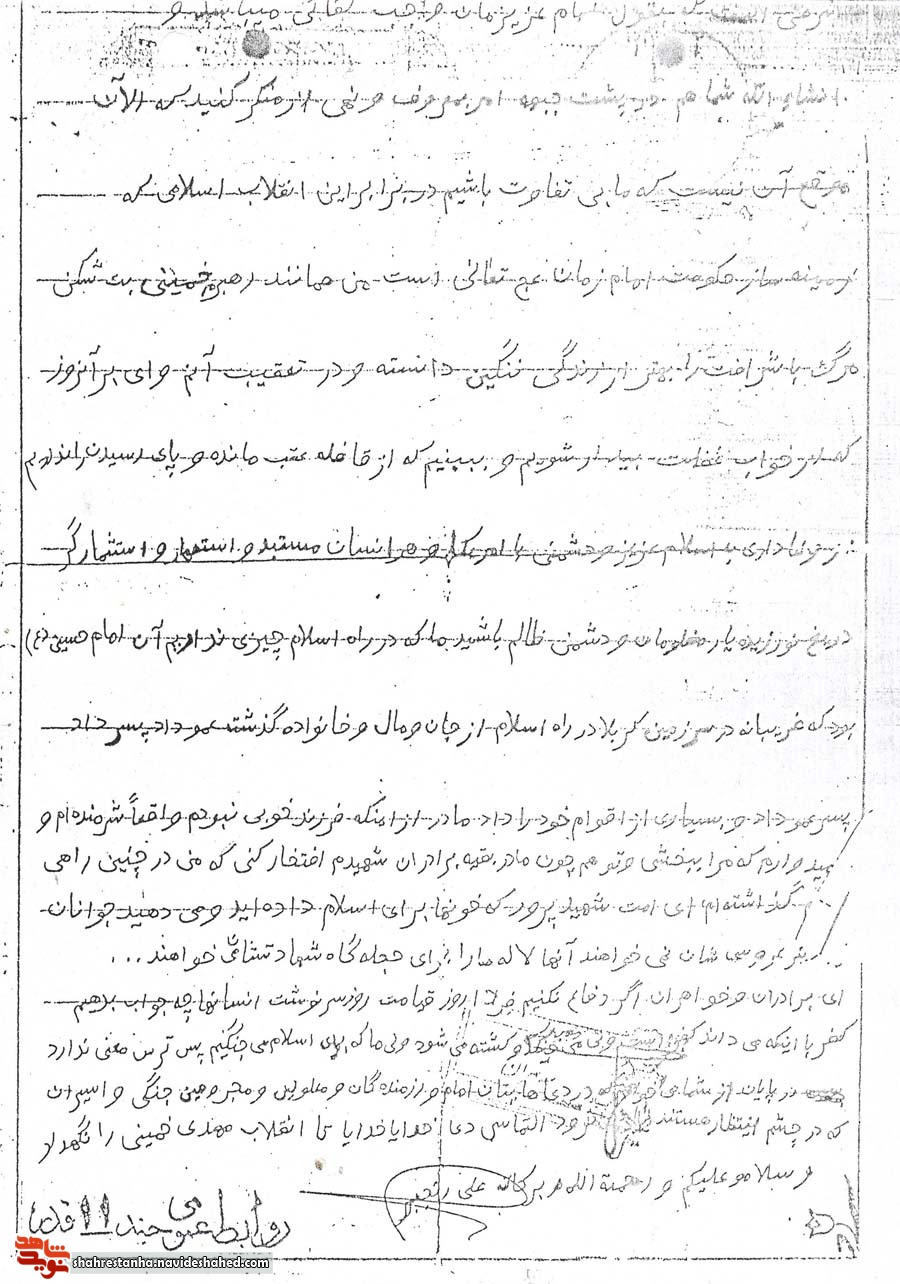 امام عزیزمان واجب کفائی میباشد و
انشاء الله شما هم در پشت جبهه امر بمعروف و نهی از منکر کنید که الآن
موقع آن نیست که ما بی تفاوت باشیم در برابر این انقلاب اسلامی که
زمینه ساز حکومت امام زمان عج تعالی است من همانند رهبرم خمینی بت شکن
مرگ با شرافت را بهتر از زندگی ننگین دانسته و در تعقیب آنم وای بر آنروز
که از خواب غفلت بیدار شویم و ببینیم که از قافله عقب مانده و پای رسیدن را نداریم
از وفاداری به اسلام عزیز و دشمنی با امریکا و هر انسان مستبد و استعمار و استثمارگر
دریغ نورزیده یار مظلومان و دشمن ظالم باشید ما که در راه اسلام چیزی نداریم آن امام حسین (ع)
بود که غریبانه در سرزمین کربلا در راه اسلام از جان و مال و خانواده گذشت عمو داد پسر داد
پسر عمو داد و بسیاری از اقوام خود را داد مادر از اینکه فرزند خوبی نبودم واقعاً شرمنده‌ام و
امیدوارم که مرا ببخشی و تو هم چون مادر بقیه برادران شهیدم افتخار کنی که من در چنین راهی
گذاشته‌ام ای امت شهید پرور که خونها برای اسلام داده اید و می دهید جوانان
بزم عروسی شان نمی خواهند آنها لاله ها را برای حجله گاه شهادتشان می خواهند ...
ای برادران و خواهران اگر دفاع نکنیم فردا روز قیامت روز سرنوشت انسانها چه جواب بدهیم
کفر با اینکه می داند و کشته می شود ولی ما که برای اسلام می جنگیم پس ترس معنی ندارد
در پایان از شما می خواهم که در دعاهایتان امام و رزمندگان و معلولین و مجروحین جنگی و اسیران
که در چشم انتظار هستند التماس دعا خدایا خدایا تا انقلاب مهدی خمینی را نگهدار
و سلامو علیکم و رحمة الله و برکاته علی رنجبر
روابط عمومی
نوید شاهد
shahrestanha.navideshahed.com